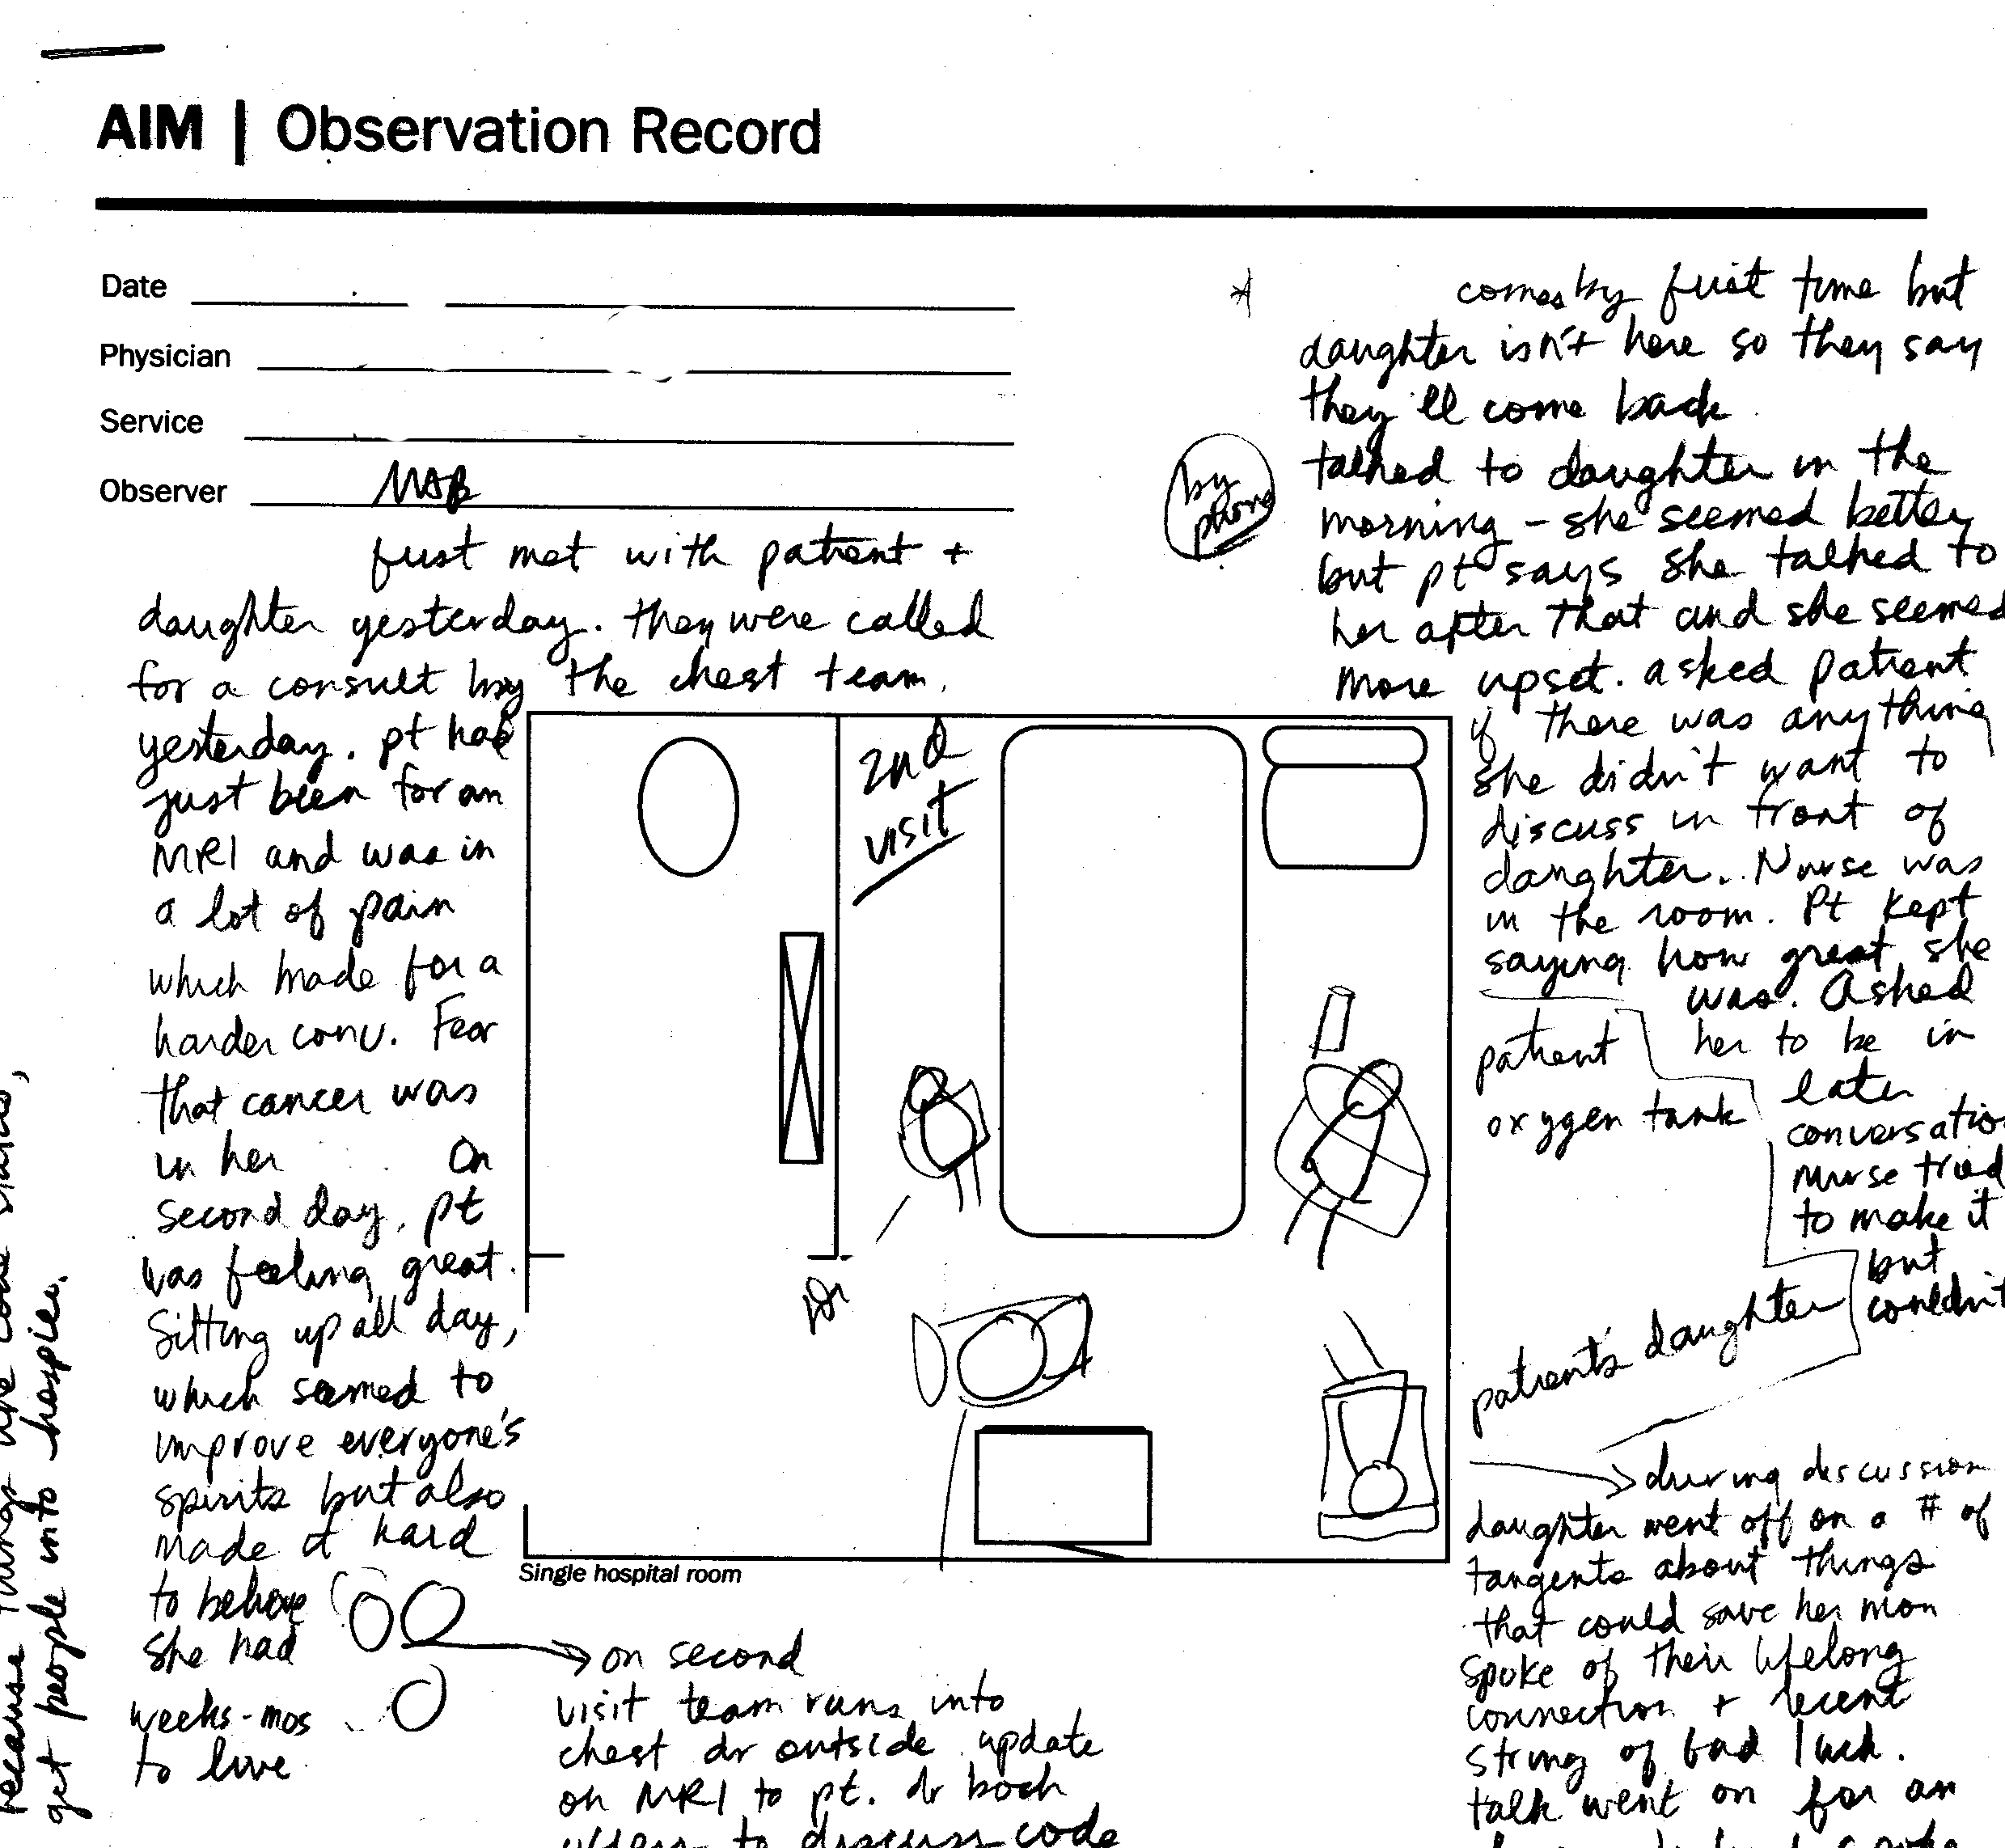 AIM | Observation Record
Date
Physician
Service
Observer MAB
first met with patient +
daughter yesterday. they were called
for a consult by the chest team.
yesterday. pt had
just been for an
MRI and was in
a lot of pain
which made for a
harder conv. Fear
that cancer was
in her On
second day, pt
was feeling great.
Sitting up all day,
which seemed to
improve everyone's
spirits but also
made it hard
to believe
she had
weeks-mos
to live
2nd
visit
Dr
Single hospital room
on second
visit team runs into
chest dr outside update
on MRI to pt. dr
to discuss code
comes by first time but
daughter isn't here so they say
they'll come back
by
phone
talked to daughter in the
morning - she seemed better
but pt says she talked to
her after that and she seemed
more upset. asked patient
if there was anything
she didn't want to
discuss in front of
daughter. Nurse was
in the room. Pt kept
saying how great she
was. Asked
her to be in
later
conversation
nurse tried
to make it
but
couldn't
patient
oxygen tank
patient's daughter
during discussion
daughter went off on a # of
tangents about things
that could save her mom
spoke of their lifelong
connection + recent
string of bad luck.
talk went on for an
because things like code status,
get people into hospice.